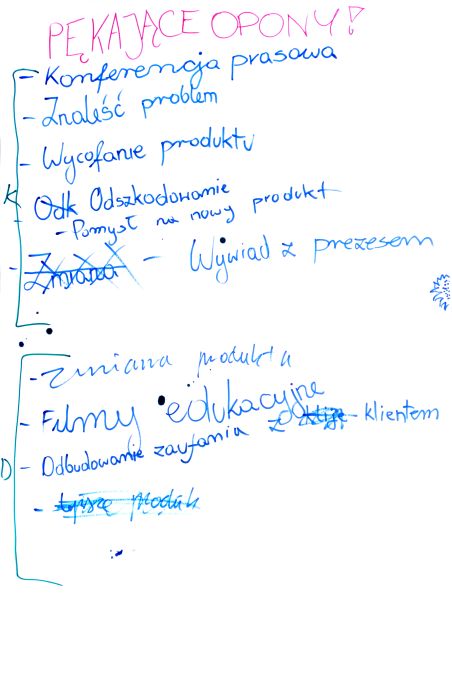 PĘKAJĄCE OPONY!
- Konferencja prasowa
- Znaleść problem
- Wycofanie produktu
K
- Odk Odszkodowanie
- Pomysł na nowy produkt
- Zmiana - Wywiad z prezesem
- Zmiana produktu
- Filmy edukacyjne
D
- Odbudowanie zaufania z klientem
- produk